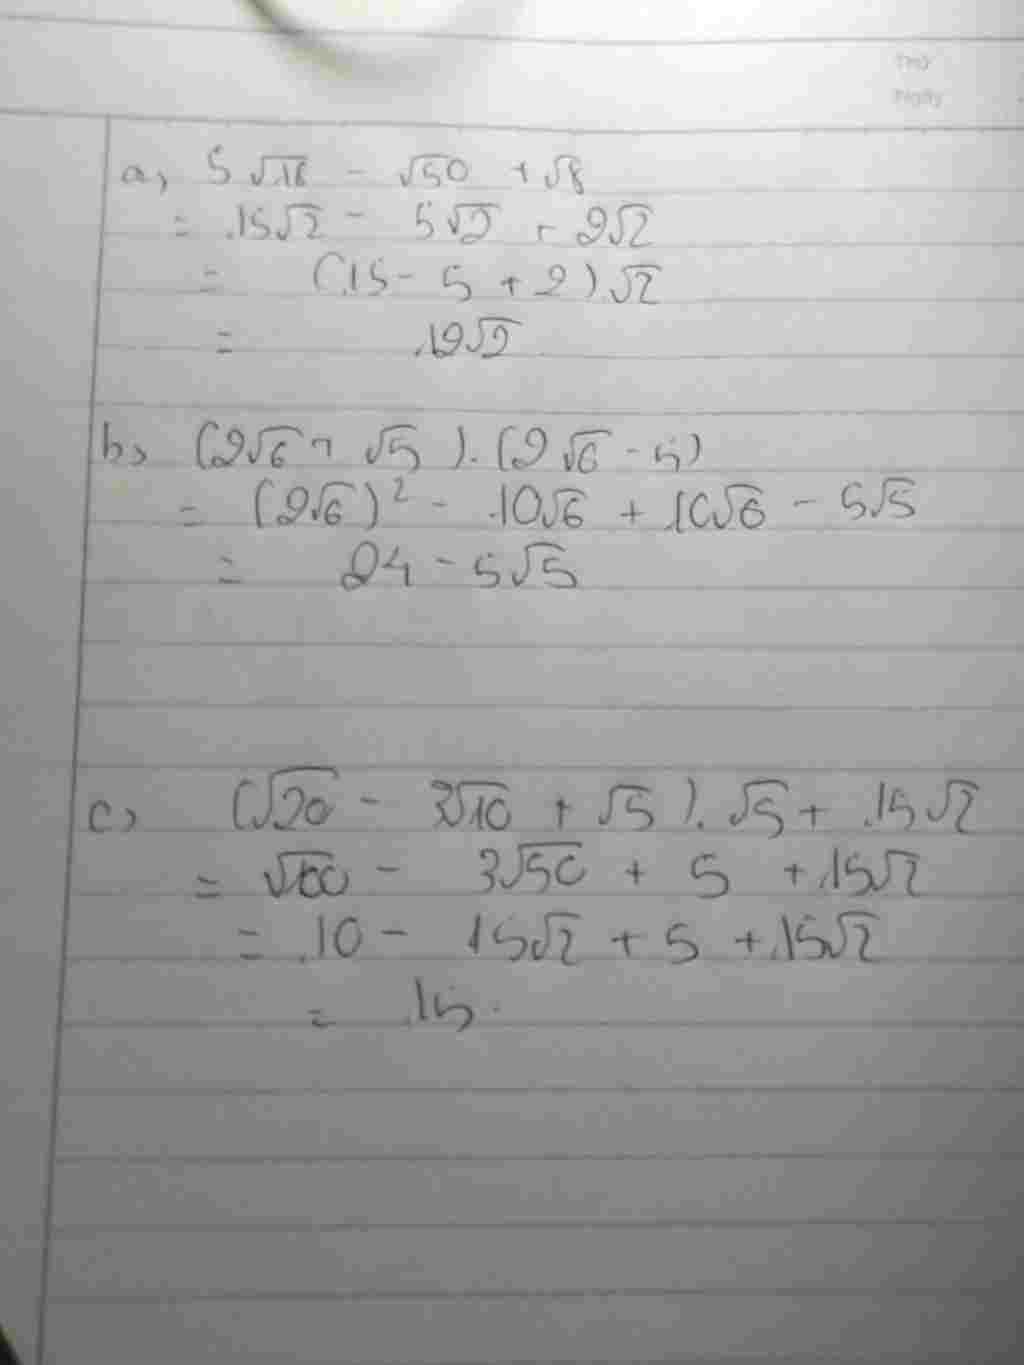 Thứ
Ngày
a, 5√18 - √50 + √8
= 15√2 - 5√2 + 2√2
= (15 - 5 + 2)√2
= 12√2
b, (2√6 + √5).(2√6 - 5)
= (2√6)² - 10√6 + 10√6 - 5√5
= 24 - 5√5
c, (√20 - 3√10 + √5).√5 + 15√2
= √100 - 3√50 + 5 + 15√2
= 10 - 15√2 + 5 + 15√2
= 15.